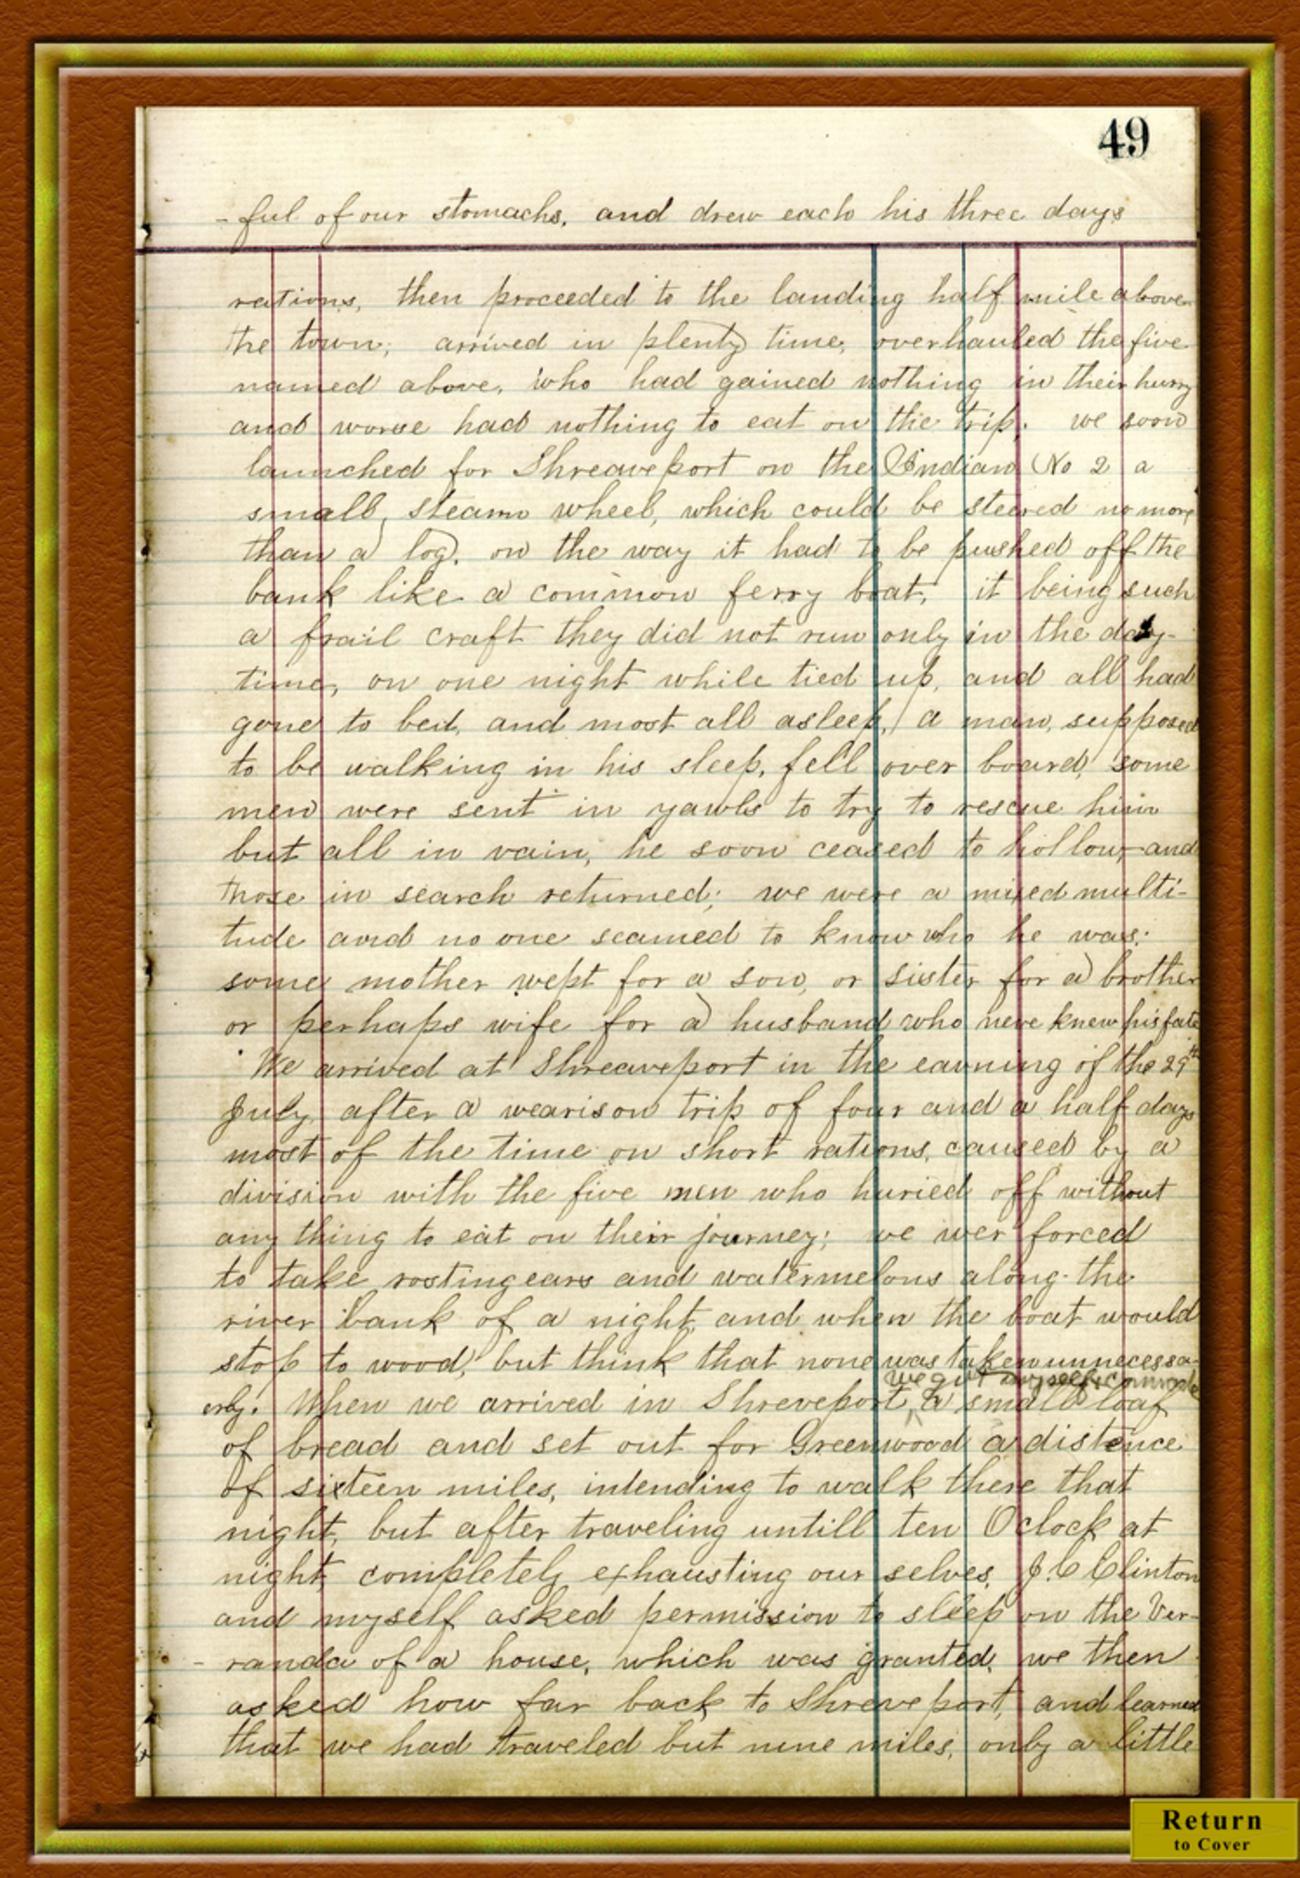 49
- ful of our stomachs, and drew each his three days
rations, then proceeded to the landing half mile above
the town; arrived in plenty time, overhauled the five
named above, who had gained nothing in their hurry
and worse had nothing to eat on the trip. we soon
launched for Shreaveport on the Indian No 2 a
small, steam wheel, which could be steered no more
than a log. on the way it had to be pushed off the
bank like a common ferry boat, it being such
a frail craft they did not run only in the day-
time, on one night while tied up, and all had
gone to bed, and most all asleep, a man, supposed
to be walking in his sleep, fell over board, some
men were sent in yawls to try to rescue him
but all in vain, he soon ceased to hollow, and
those in search returned; we were a mixed multi-
tude and no one seamed to know who he was.
some mother wept for a son, or sister for a brother
or perhaps wife for a husband who neve knew his fate
We arrived at Shreaveport in the eavning of the 29th
July, after a wearison trip of four and a half days
most of the time on short rations, caused by a
division with the five men who huried off without
any thing to eat on their journey; we wer forced
to take rostingears and watermelons along the
river bank of a night, and when the boat would
stop to wood, but think that none was taken unnecessa-
we got myself & comrade
erly. When we arrived in Shreveport, a small loaf
of bread and set out for Greenwood a distence
of sixteen miles, intending to walk there that
night, but after traveling untill ten Oclock at
night, completely exhausting our selves, J. C Clinton
and myself asked permission to sleep on the Ver-
- randa of a house, which was granted, we then
asked how far back to Shreveport, and learned
that we had traveled but nine miles, only a little
Return
to Cover